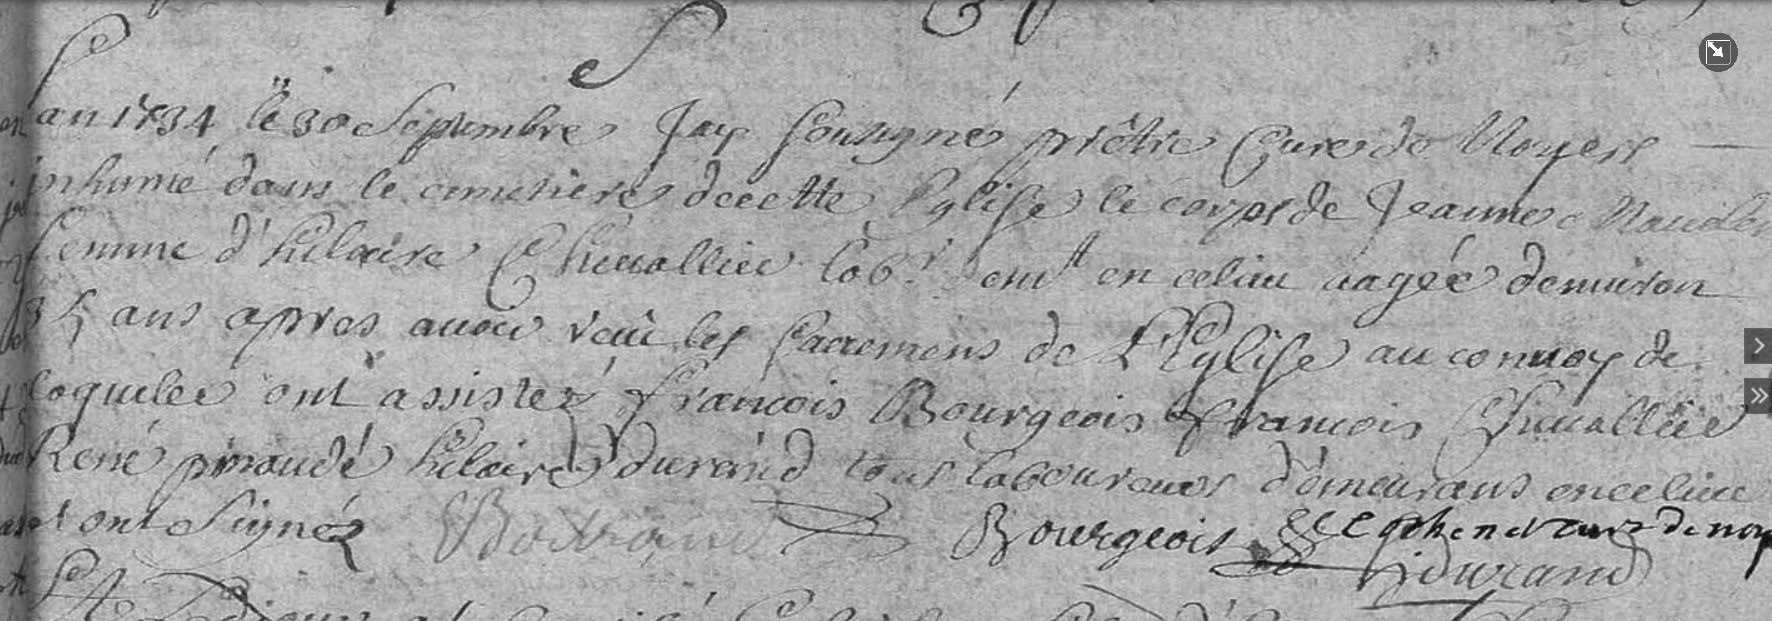 L'an 1734 le 30 Septembre J'ay Soussigné prêtre Curé de Noyers
inhumé dans le cimetiere de cette Eglise le corps de Jeanne
femme d'hilaire Chevallier lab.r dem.t en ce lieu aagée denviron
35 ans apres avoir reçu les Sacremens de L'Eglise au convoy de
laquelle ont assistez françois Bourgeois françois Chevallier
René pinaudé hilaire durand tous laboureurs demeurans en ce lieu
ont Signéz Bourgeois curé de noy
durand